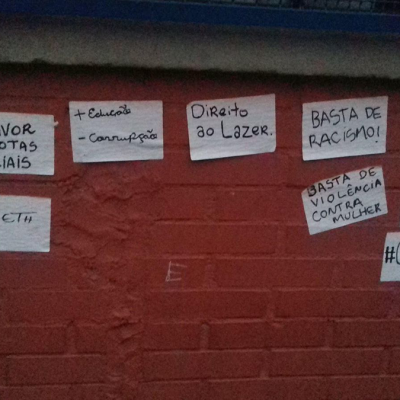 VOR
OTAS
IAIS
+ Educação
- Corrupção
Direito
ao Lazer.
BASTA DE
RACISMO!
BASTA DE
VIOLÊNCIA
CONTRA
MULHER
ETH
E
#